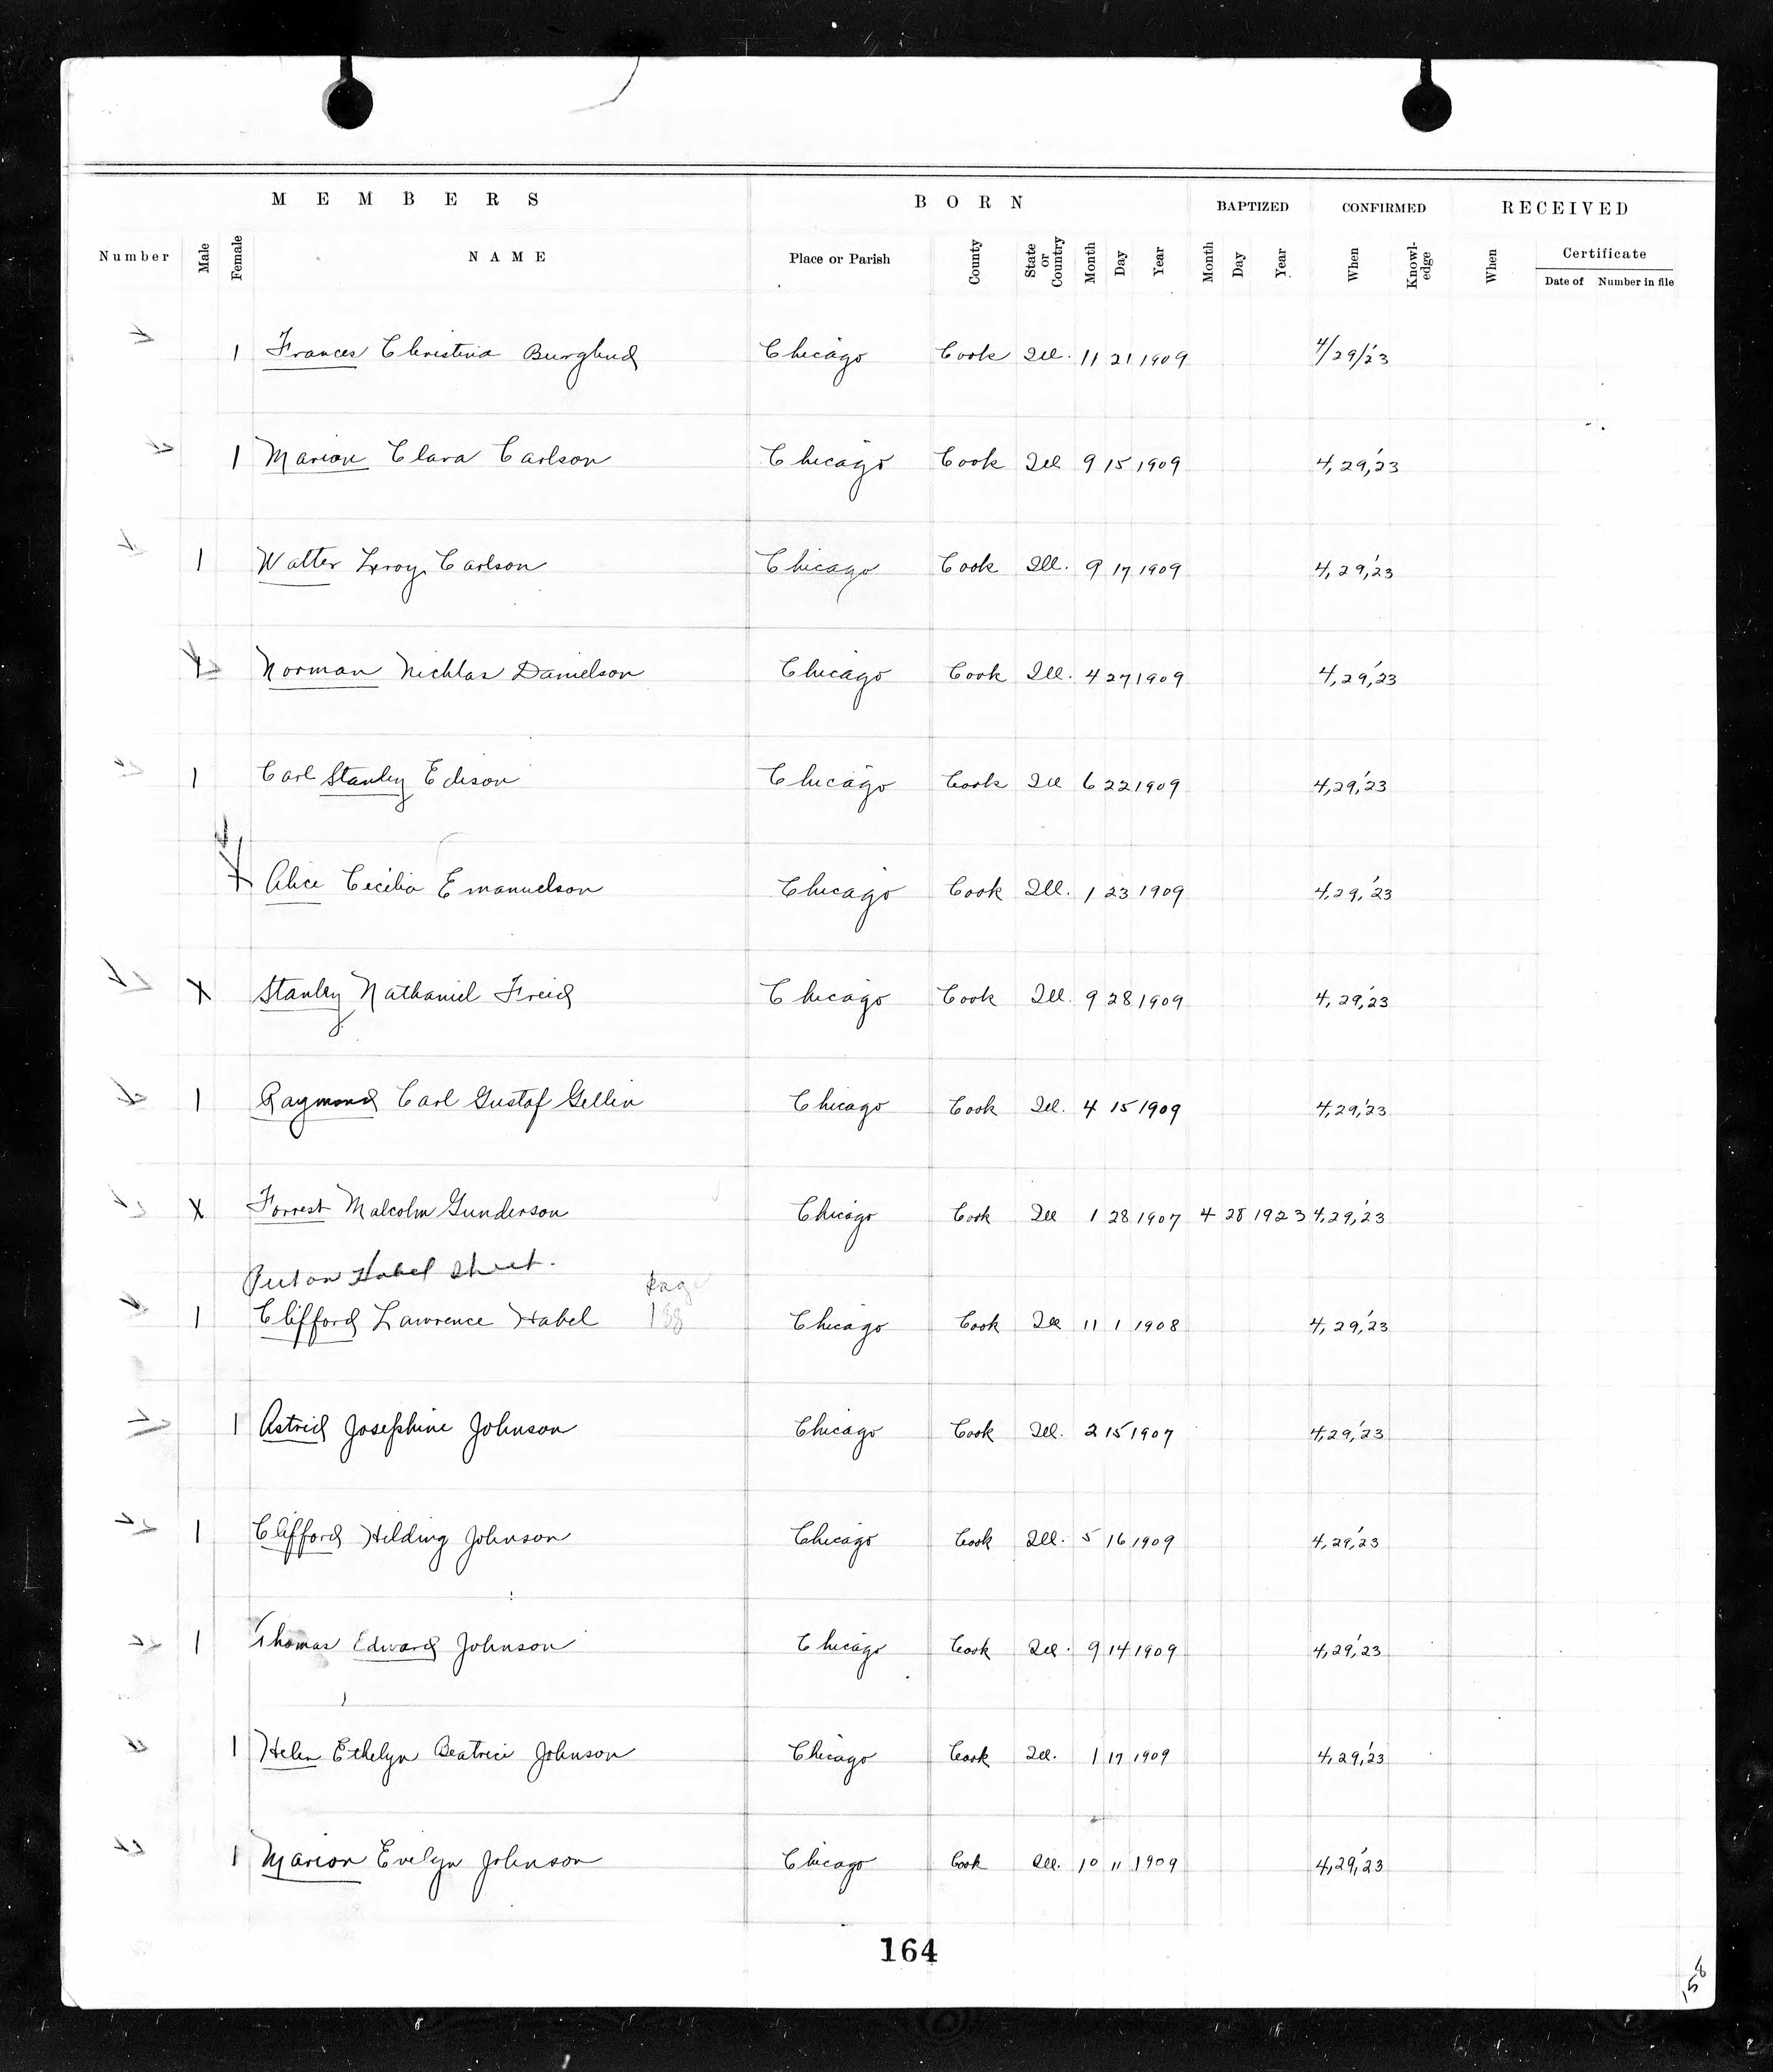 MEMBERS BORN BAPTIZED CONFIRMED RECEIVED
Number Male Female NAME Place or Parish County State or Country Month Day Year Month Day Year When Knowl-edge When Certificate
Date of Number in file
1 Frances Christina Burglund Chicago Cook Ill. 11 21 1909 4/29/'23
1 Marion Clara Carlson Chicago Cook Ill 9 15 1909 4,29,'23
1 Walter Leroy Carlson Chicago Cook Ill. 9 17 1909 4,29,'23
Norman Nichlas Danielson Chicago Cook Ill. 4 27 1909 4,29,'23
1 Carl Stanley Edison Chicago Cook Ill 6 22 1909 4,29,'23
Alice Cecilia Emanuelson Chicago Cook Ill. 1 23 1909 4,29,'23
X Stanley Nathaniel Freid Chicago Cook Ill. 9 28 1909 4,29,'23
1 Raymond Carl Gustaf Gellin Chicago Cook Ill. 4 15 1909 4,29,'23
X Forrest Malcolm Gunderson Chicago Cook Ill 1 28 1907 4 28 1923 4,29,'23
Put on Habel sheet.
Page
1 Clifford Lawrence Habel 188 Chicago Cook Ill 11 1 1908 4,29,'23
1 Astrid Josephine Johnson Chicago Cook Ill. 2 15 1907 4,29,'23
1 Clifford Hilding Johnson Chicago Cook Ill. 5 16 1909 4,29,'23
1 Thomas Edward Johnson Chicago Cook Ill. 9 14 1909 4,29,'23
1 Helen Ethelyn Beatrice Johnson Chicago Cook Ill. 1 17 1909 4,29,'23
1 Marion Evelyn Johnson Chicago Cook Ill. 10 11 1909 4,29,'23
164
158